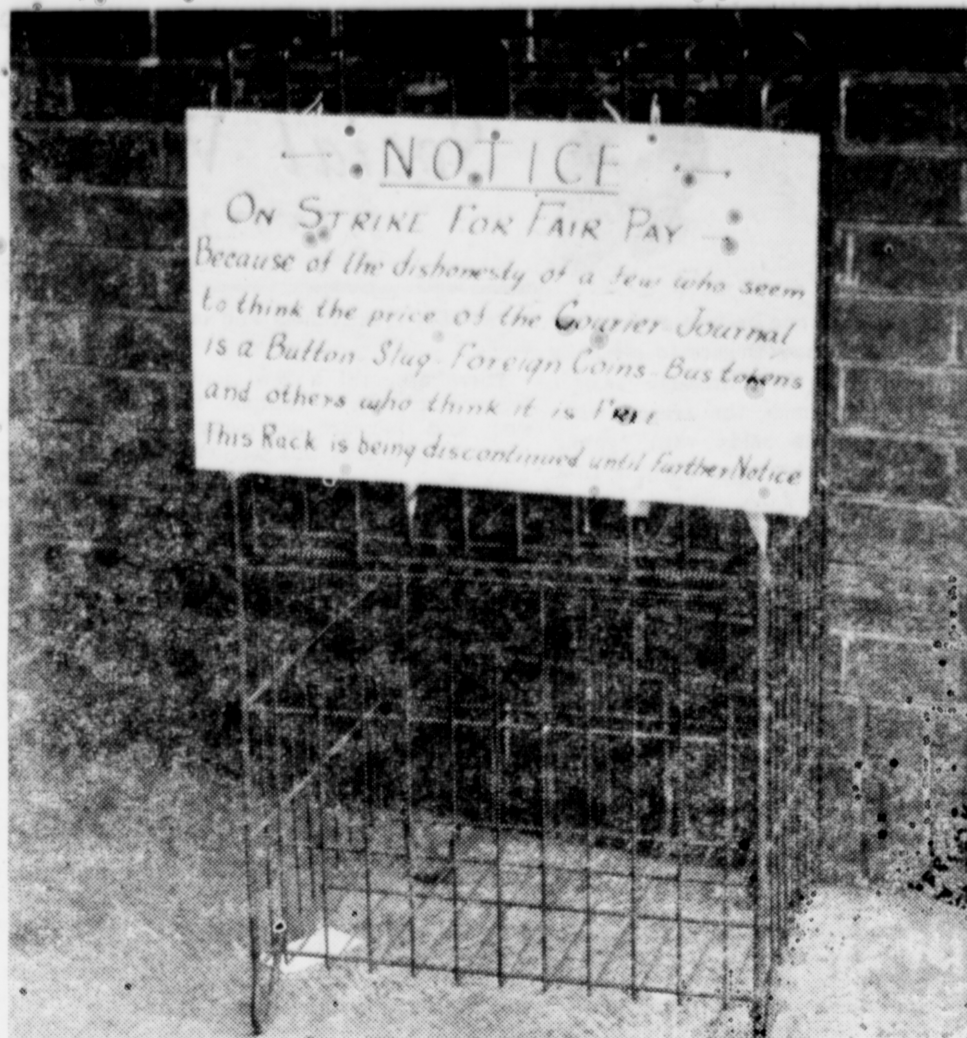 — NOTICE —
ON STRIKE FOR FAIR PAY —
Because of the dishonesty of a few who seem
to think the price of the Courier-Journal
is a Button-Slug-Foreign Coins-Bus tokens
and others who think it is FREE
This Rack is being discontinued until further Notice